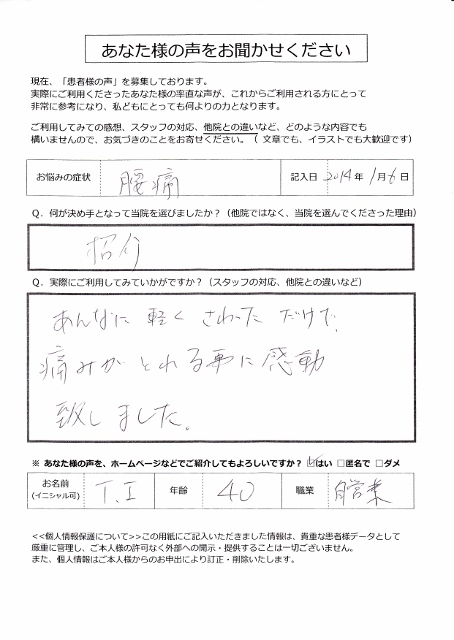 あなた様の声をお聞かせください
現在、「患者様の声」を募集しております。
実際にご利用くださったあなた様の率直な声が、これからご利用される方にとって
非常に参考になり、私どもにとっても何よりの力となります。
ご利用してみての感想、スタッフの対応、他院との違いなど、どのような内容でも
構いませんので、お気づきのことをお寄せください。（ 文章でも、イラストでも大歓迎です）
お悩みの症状 腰痛 記入日 2014年 1月6日
Q．何が決め手となって当院を選びましたか？（他院ではなく、当院を選んでくださった理由）
紹介
Q．実際にご利用してみていかがですか？（スタッフの対応、他院との違いなど）
あんなに 軽く さわった だけで、
痛みが とれる事に 感動
致しました。
※ あなた様の声を、ホームページなどでご紹介してもよろしいですか？ ☑はい □匿名で □ダメ
お名前 (イニシャル可) T.I 年齢 40 職業 自営業
<<個人情報保護について>>この用紙にご記入いただきました情報は、貴重な患者様データとして
厳重に管理し、ご本人様の許可なく外部への開示・提供することは一切ございません。
また、個人情報はご本人様からのお申出により訂正・削除いたします。